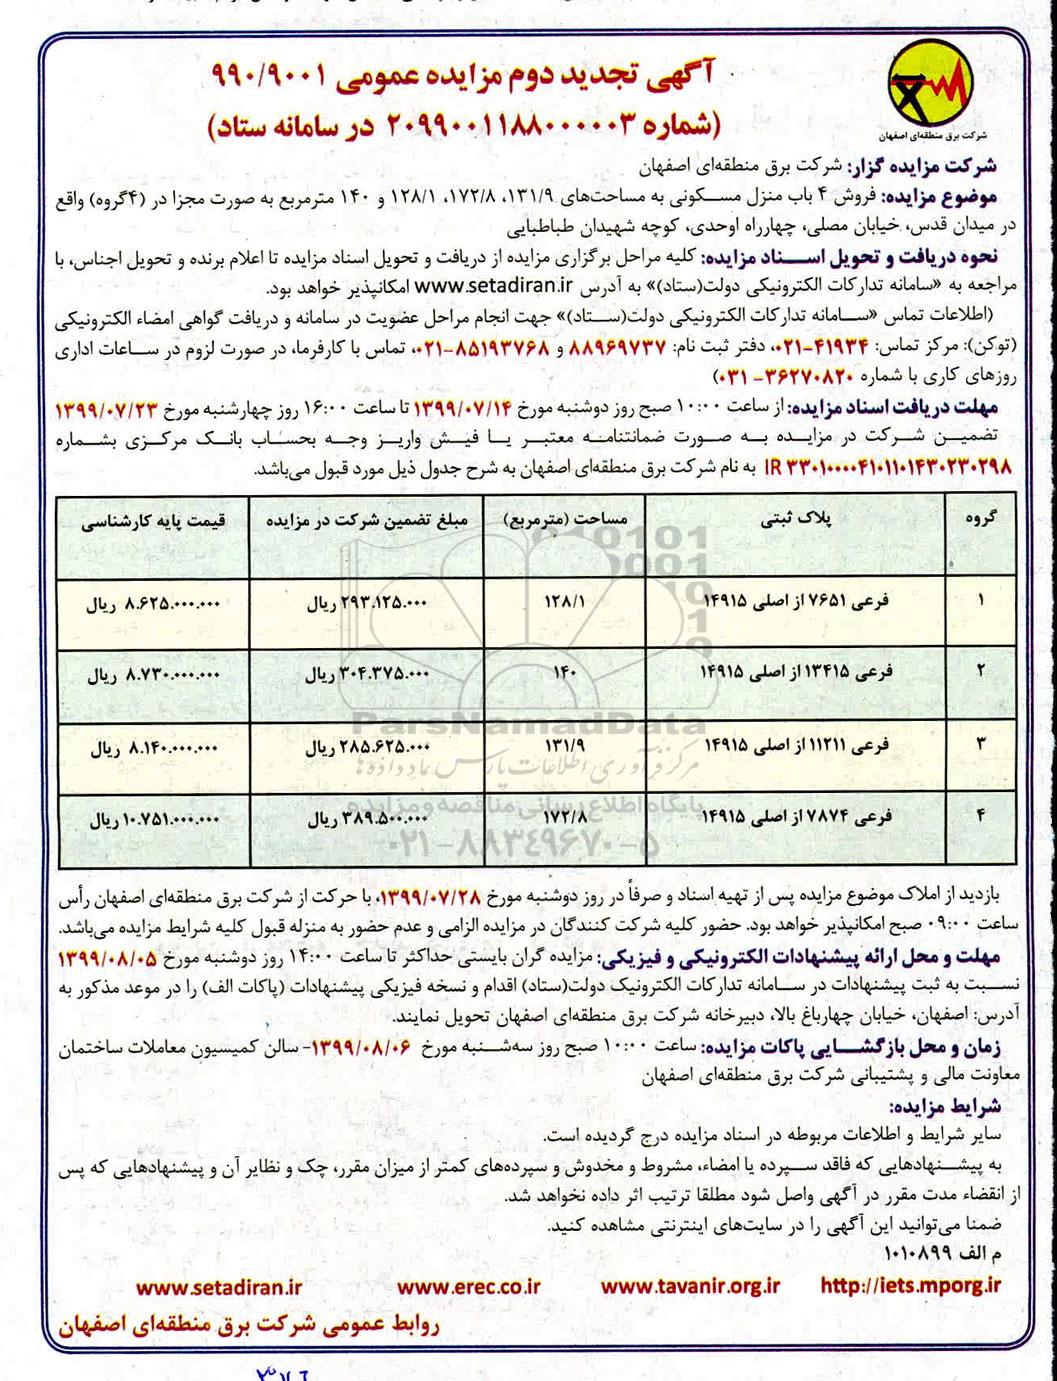 آگهی تجدید دوم مزایده عمومی ۹۹۰/۹۰۰۱
(شماره ۲۰۹۹۰۰۱۱۸۸۰۰۰۰۰۳ در سامانه ستاد)
شرکت برق منطقه‌ای اصفهان
شرکت مزایده گزار: شرکت برق منطقه‌ای اصفهان
موضوع مزایده: فروش ۴ باب منزل مسکونی به مساحت‌های ۱۳۱/۹، ۱۷۲/۸، ۱۲۸/۱ و ۱۴۰ مترمربع به صورت مجزا در (۴گروه) واقع
در میدان قدس، خیابان مصلی، چهارراه اوحدی، کوچه شهیدان طباطبایی
نحوه دریافت و تحویل اسناد مزایده: کلیه مراحل برگزاری مزایده از دریافت و تحویل اسناد مزایده تا اعلام برنده و تحویل اجناس، با
مراجعه به «سامانه تدارکات الکترونیکی دولت(ستاد)» به آدرس www.setadiran.ir امکانپذیر خواهد بود.
(اطلاعات تماس «سامانه تدارکات الکترونیکی دولت(ستاد)» جهت انجام مراحل عضویت در سامانه و دریافت گواهی امضاء الکترونیکی
(توکن): مرکز تماس: ۴۱۹۳۴-۰۲۱، دفتر ثبت نام: ۸۸۹۶۹۷۳۷ و ۸۵۱۹۳۷۶۸-۰۲۱، تماس با کارفرما، در صورت لزوم در ساعات اداری
روزهای کاری با شماره ۳۶۲۷۰۸۲۰- ۰۳۱)
مهلت دریافت اسناد مزایده: از ساعت ۱۰:۰۰ صبح روز دوشنبه مورخ ۱۳۹۹/۰۷/۱۴ تا ساعت ۱۶:۰۰ روز چهارشنبه مورخ ۱۳۹۹/۰۷/۲۳
تضمین شرکت در مزایده به صورت ضمانتنامه معتبر یا فیش واریز وجه بحساب بانک مرکزی بشماره
IR ۳۳۰۱۰۰۰۰۴۱۰۱۱۰۱۴۳۰۲۳۰۲۹۸ به نام شرکت برق منطقه‌ای اصفهان به شرح جدول ذیل مورد قبول می‌باشد.
گروه پلاک ثبتی مساحت (مترمربع) مبلغ تضمین شرکت در مزایده قیمت پایه کارشناسی
۱ فرعی ۷۶۵۱ از اصلی ۱۴۹۱۵ ۱۲۸/۱ ۲۹۳.۱۲۵.۰۰۰ ریال ۸.۶۲۵.۰۰۰.۰۰۰ ریال
۲ فرعی ۱۳۴۱۵ از اصلی ۱۴۹۱۵ ۱۴۰ ۳۰۴.۳۷۵.۰۰۰ ریال ۸.۷۳۰.۰۰۰.۰۰۰ ریال
۳ فرعی ۱۱۲۱۱ از اصلی ۱۴۹۱۵ ۱۳۱/۹ ۲۸۵.۶۲۵.۰۰۰ ریال ۸.۱۴۰.۰۰۰.۰۰۰ ریال
۴ فرعی ۷۸۷۴ از اصلی ۱۴۹۱۵ ۱۷۲/۸ ۳۸۹.۵۰۰.۰۰۰ ریال ۱۰.۷۵۱.۰۰۰.۰۰۰ ریال
ParsNamadData
مرکز فرآوری اطلاعات پارس نماد داده‌ها
پایگاه اطلاع رسانی مناقصه و مزایده
۰۲۱-۸۸۳۴۹۶۷۰-۵
بازدید از املاک موضوع مزایده پس از تهیه اسناد و صرفاً در روز دوشنبه مورخ ۱۳۹۹/۰۷/۲۸، با حرکت از شرکت برق منطقه‌ای اصفهان رأس
ساعت ۰۹:۰۰ صبح امکانپذیر خواهد بود. حضور کلیه شرکت کنندگان در مزایده الزامی و عدم حضور به منزله قبول کلیه شرایط مزایده می‌باشد.
مهلت و محل ارائه پیشنهادات الکترونیکی و فیزیکی: مزایده گران بایستی حداکثر تا ساعت ۱۴:۰۰ روز دوشنبه مورخ ۱۳۹۹/۰۸/۰۵
نسبت به ثبت پیشنهادات در سامانه تدارکات الکترونیک دولت(ستاد) اقدام و نسخه فیزیکی پیشنهادات (پاکات الف) را در موعد مذکور به
آدرس: اصفهان، خیابان چهارباغ بالا، دبیرخانه شرکت برق منطقه‌ای اصفهان تحویل نمایند.
زمان و محل بازگشایی پاکات مزایده: ساعت ۱۰:۰۰ صبح روز سه‌شنبه مورخ ۱۳۹۹/۰۸/۰۶- سالن کمیسیون معاملات ساختمان
معاونت مالی و پشتیبانی شرکت برق منطقه‌ای اصفهان
شرایط مزایده:
سایر شرایط و اطلاعات مربوطه در اسناد مزایده درج گردیده است.
به پیشنهادهایی که فاقد سپرده یا امضاء، مشروط و مخدوش و سپرده‌های کمتر از میزان مقرر، چک و نظایر آن و پیشنهادهایی که پس
از انقضاء مدت مقرر در آگهی واصل شود مطلقا ترتیب اثر داده نخواهد شد.
ضمنا می‌توانید این آگهی را در سایت‌های اینترنتی مشاهده کنید.
م الف ۱۰۱۰۸۹۹
http://iets.mporg.ir www.tavanir.org.ir www.erec.co.ir www.setadiran.ir
روابط عمومی شرکت برق منطقه‌ای اصفهان